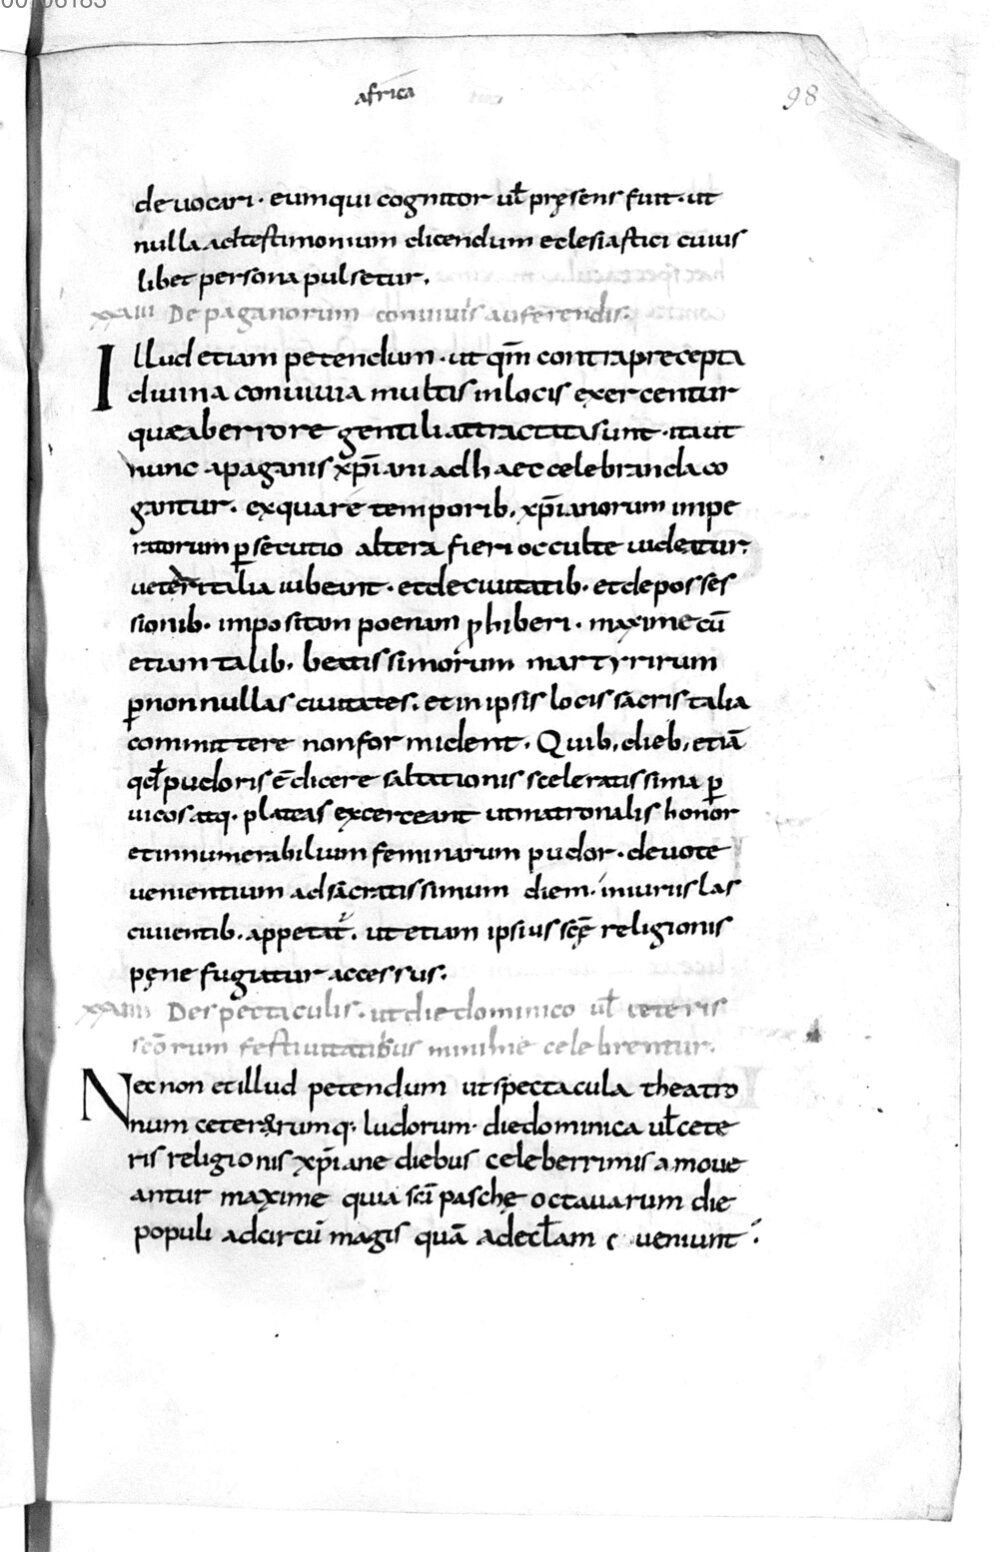 africa
98
de uocari · eum qui cognitor ul̄ pręsens fuit · ut
nulla ad testimonium dicendum eclesiastici cuius
libet persona pulsetur.
xxiii De paganorum conuiuiis auferendis.
Illud etiam petendum · ut qm̄ contra precepta
diuina conuiuia multis in locis exercentur
quae ab errore gentili attracta sunt · ita ut
nunc a paganis xp̄iani ad haec celebranda co
gantur · ex qua re temporib, xp̄ianorum impe
ratorum ꝑsecutio altera fieri occulte uidetur.
uetari talia iubeant · et de ciuitatib · et de posses
sionib · imposita poena ꝓhiberi · maxime cū
etiam talib, beatissimorum martyrirum
ꝑ nonnullas ciuitates. et in ipsis locis sacris talia
committere non formident. Quib, dieb, etiā
qđ pudoris ē dicere saltationis sceleratissima ꝑ
uicos atq · plateas exerceant ut matronalis honor
et innumerabilium feminarum pudor · deuote
uenientium ad sacratissimum diem · iniuriis las
ciuientib. appetat̄. ut etiam ipsius scē religionis
pęne fugiatur accessus.
xxiiii De spectaculis · ut die dominico ul̄ ceteris
scōrum festiuitatibus minime celebrentur.
Nec non et illud petendum ut spectacula theatro
num ceterorumq · ludorum · die dominica ul̄ cete
ris religionis xp̄iane diebus celeberrimis amoue
antur maxime quia sc̄i paschę octauarum die
populi ad circū magis quā ad ecl̄am c ueniunt.